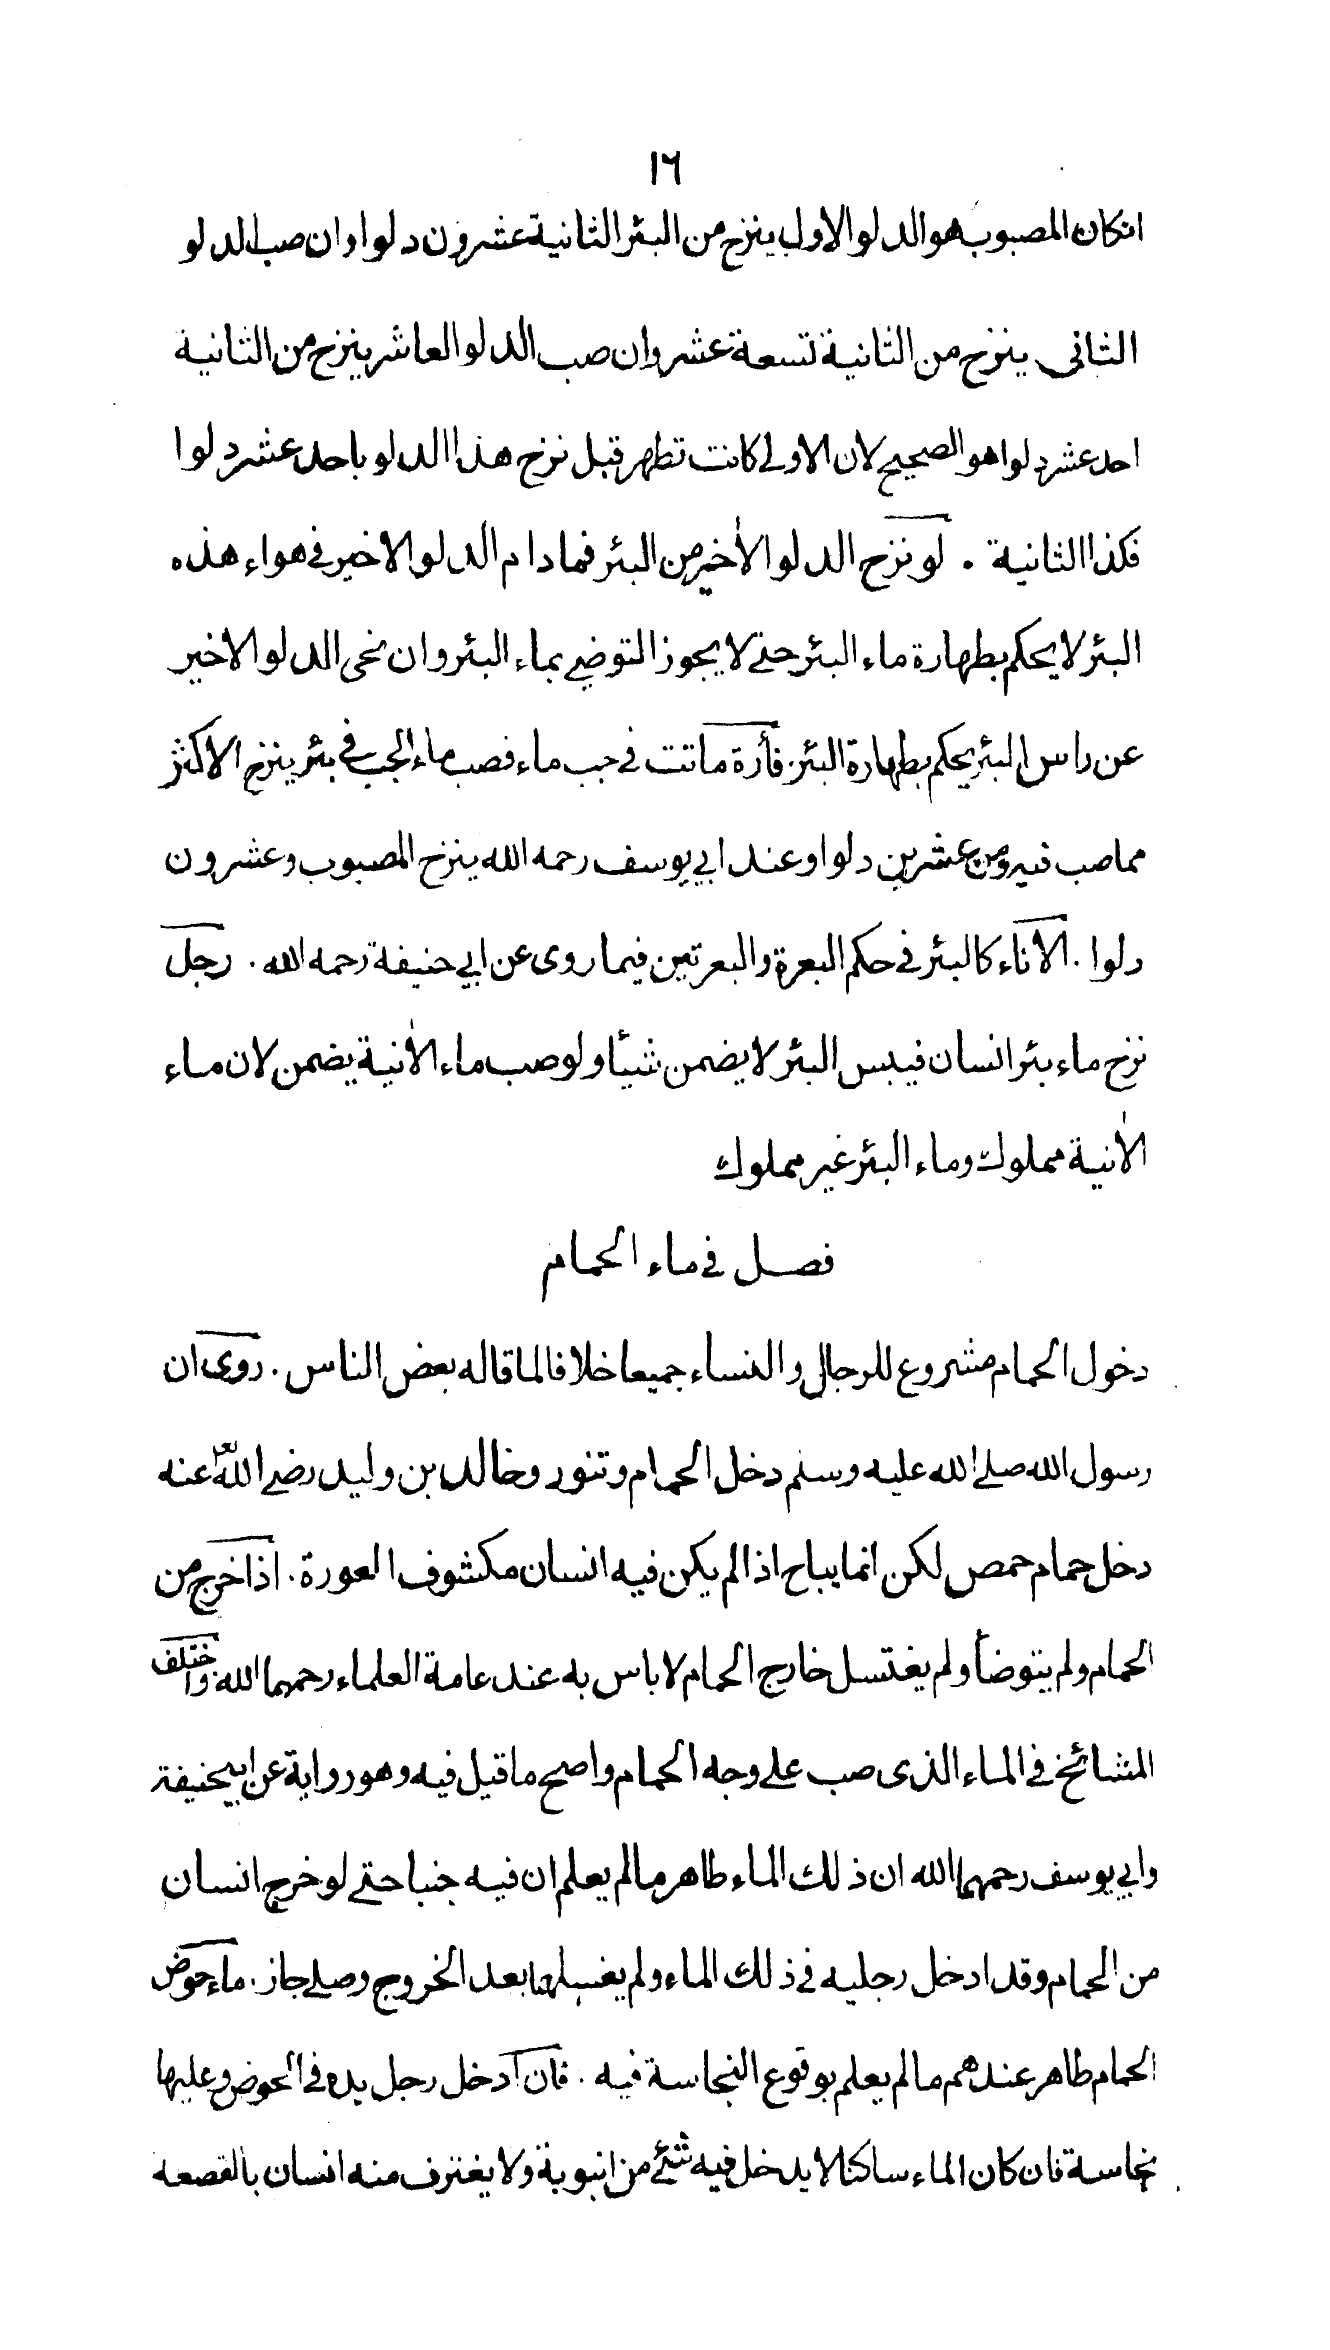 ١٦
انكان المصبوب هو الدلو الاول ينزح من البئر الثانية عشرون دلوا وان صب الدلو
الثانى ينزح من الثانية تسعة عشر وان صب الدلو العاشر ينزح من الثانية
احد عشر دلوا هو الصحيح لان الاولى كانت تطهر قبل نزح هذا الدلو باحد عشر دلوا
فكذا الثانية . لو نزح الدلو الأخير من البئر فما دام الدلو الاخير فى هواء هذه
البئر لا يحكم بطهارة ماء البئر حتى لا يجوز التوضى بماء البئر وان نحى الدلو الاخير
عن راس البئر يحكم بطهارة البئر. فأرة ماتت فى جب ماء فصب ماء الجب فى بئر ينزح الاكثر
مما صب فيه ومن عشرين دلوا وعند ابي يوسف رحمه الله ينزح المصبوب وعشرون
دلوا . الاناء كالبئر فى حكم البعرة والبعرتين فيما روى عن ابي حنيفة رحمه الله . رجل
نزح ماء بئر انسان فيبس البئر لا يضمن شيئا ولو صب ماء الأنية يضمن لان ماء
الأنية مملوك وماء البئر غير مملوك
فصل فى ماء الحمام
دخول الحمام مشروع للرجال والنساء جميعا خلافا لما قاله بعض الناس . روى ان
رسول الله صلى الله عليه وسلم دخل الحمام وتنور وخالد بن وليد رضى الله تعا عنه
دخل حمام حمص لكن انما يباح اذا لم يكن فيه انسان مكشوف العورة . اذا خرج من
الحمام ولم يتوضأ ولم يغتسل خارج الحمام لا باس به عند عامة العلماء رحمهما الله. واختلف
المشائخ فى الماء الذى صب على وجه الحمام واصح ما قيل فيه وهو رواية عن ابيحنيفة
وابي يوسف رحمهما الله ان ذلك الماء طاهر ما لم يعلم ان فيه جنبا حتى لو خرج انسان
من الحمام وقد ادخل رجليه فى ذلك الماء ولم يغسلهما بعد الخروج وصلى جاز . ماء حوض
الحمام طاهر عندهم ما لم يعلم بوقوع النجاسة فيه . فان ادخل رجل يده فى الحوض وعليها
نجاسة فان كان الماء ساكنا لا يدخل فيه شئ من انبوبة ولا يغترف منه انسان بالقصعه